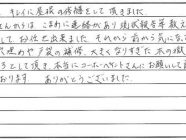 キレイに屋根の修繕をして頂きました。
さんからは、こまめに連絡があり 現状報告等教え
して お任せ出来ました。それから 前から気になって
穴埋めや戸袋の補修、大きくなりすぎた木の
うとして頂き、本当にコーホーベントさんにお願いして
おります。ありがとうございました。